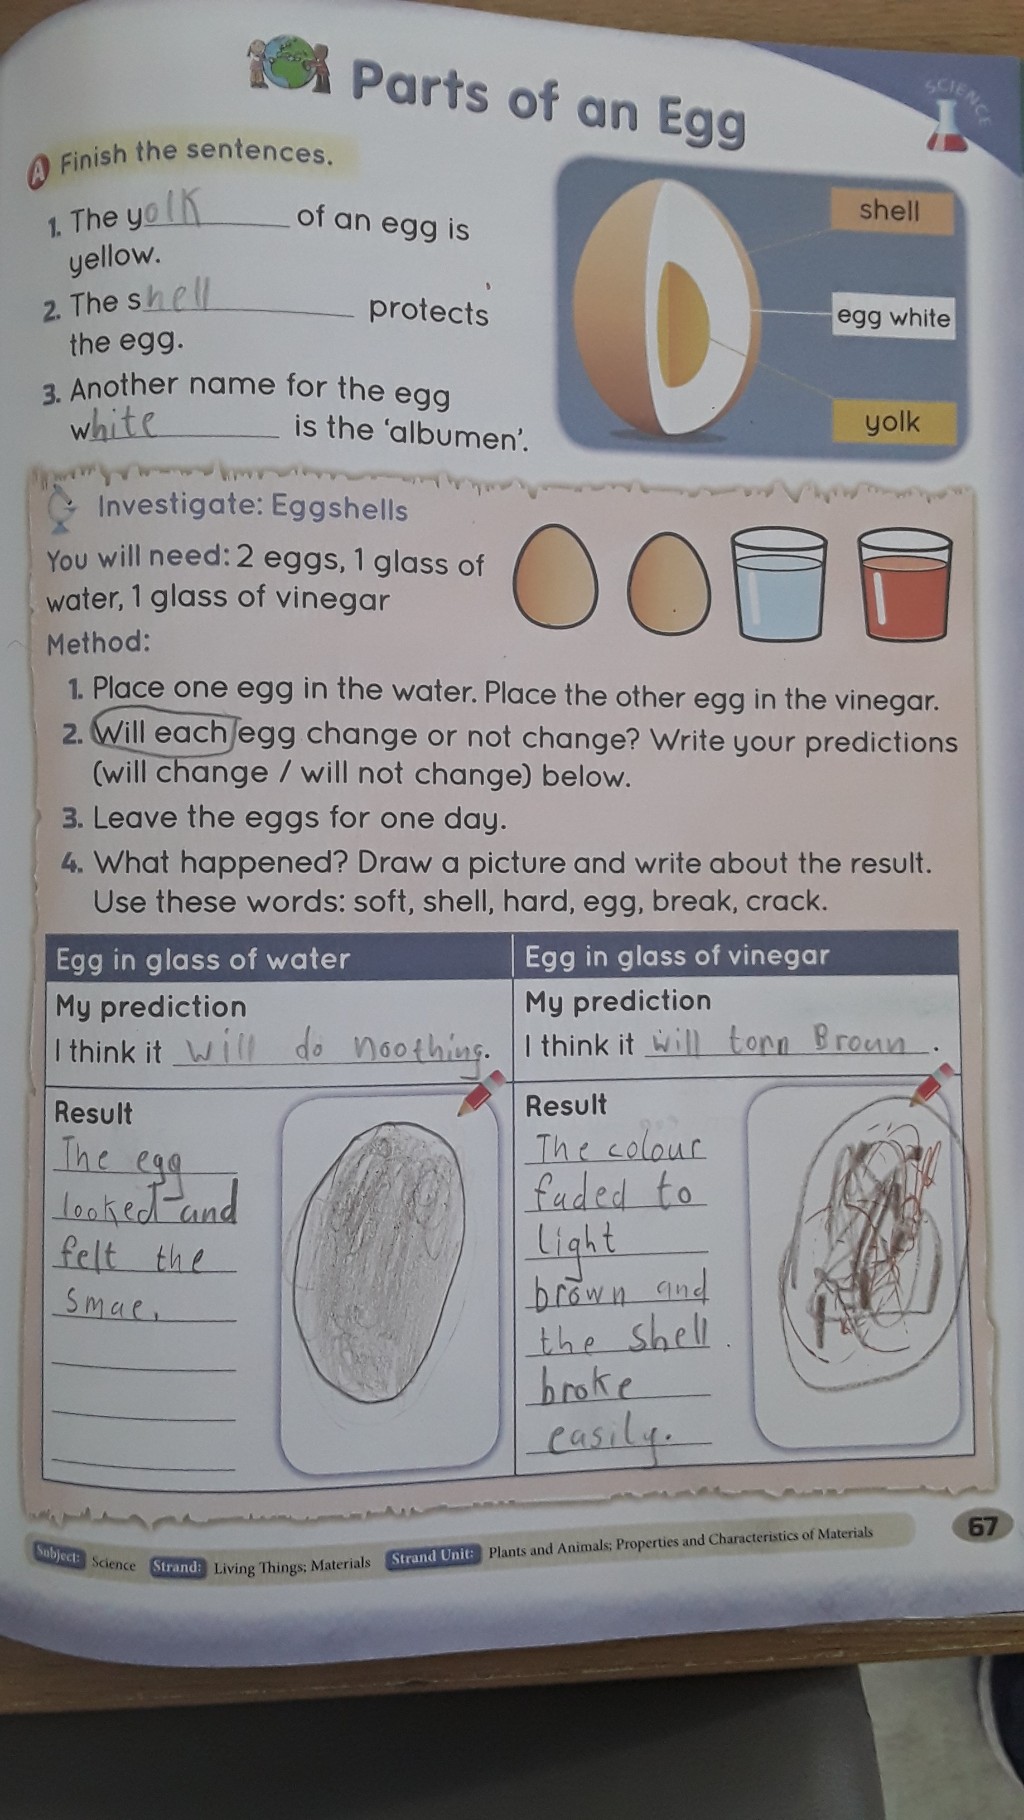 Parts of an Egg
SCIENCE
A Finish the sentences.
1. The yolk of an egg is
yellow.
2. The shell protects
the egg.
3. Another name for the egg
white is the 'albumen'.
shell
egg white
yolk
Investigate: Eggshells
You will need: 2 eggs, 1 glass of
water, 1 glass of vinegar
Method:
1. Place one egg in the water. Place the other egg in the vinegar.
2. Will each egg change or not change? Write your predictions
(will change / will not change) below.
3. Leave the eggs for one day.
4. What happened? Draw a picture and write about the result.
Use these words: soft, shell, hard, egg, break, crack.
Egg in glass of water
My prediction
I think it will do noothing.
Result
The egg
looked and
felt the
smae.
Egg in glass of vinegar
My prediction
I think it will tonn Broun.
Result
The colour
faded to
light
brown and
the shell
broke
easily.
67
Subject: Science Strand: Living Things; Materials Strand Unit: Plants and Animals; Properties and Characteristics of Materials